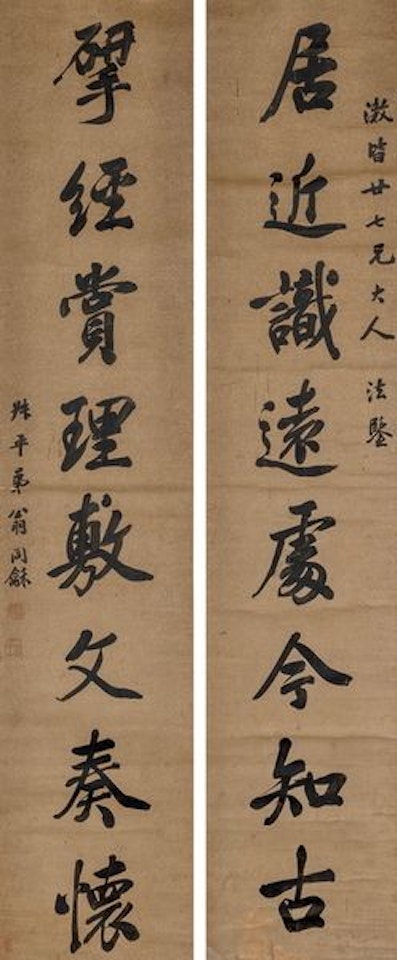 皆廿七兄大人 法鑒
居近識遠處今知古
揅經賞理敷文奏懷
叔平弟翁同龢